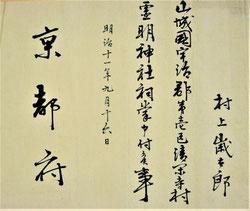 村上歳太郎
山城國宇治郡第壱區清閑寺村
霊明神社祠掌申付候事
明治十一年九月十六日
京都府